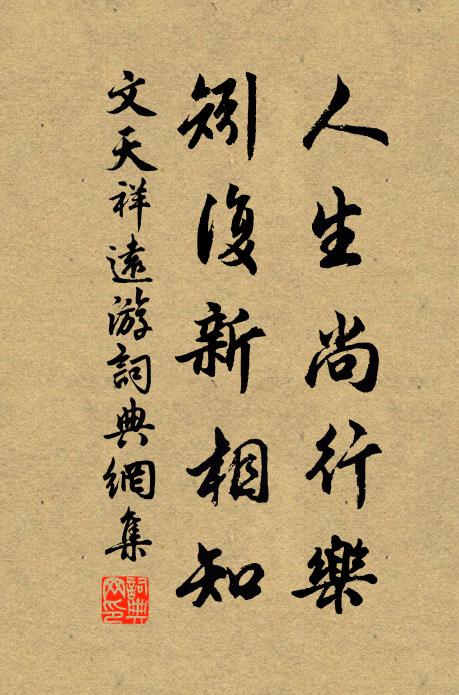 人生尚行樂
矧復新相知
文天祥遠游詞典網集
詞典网印